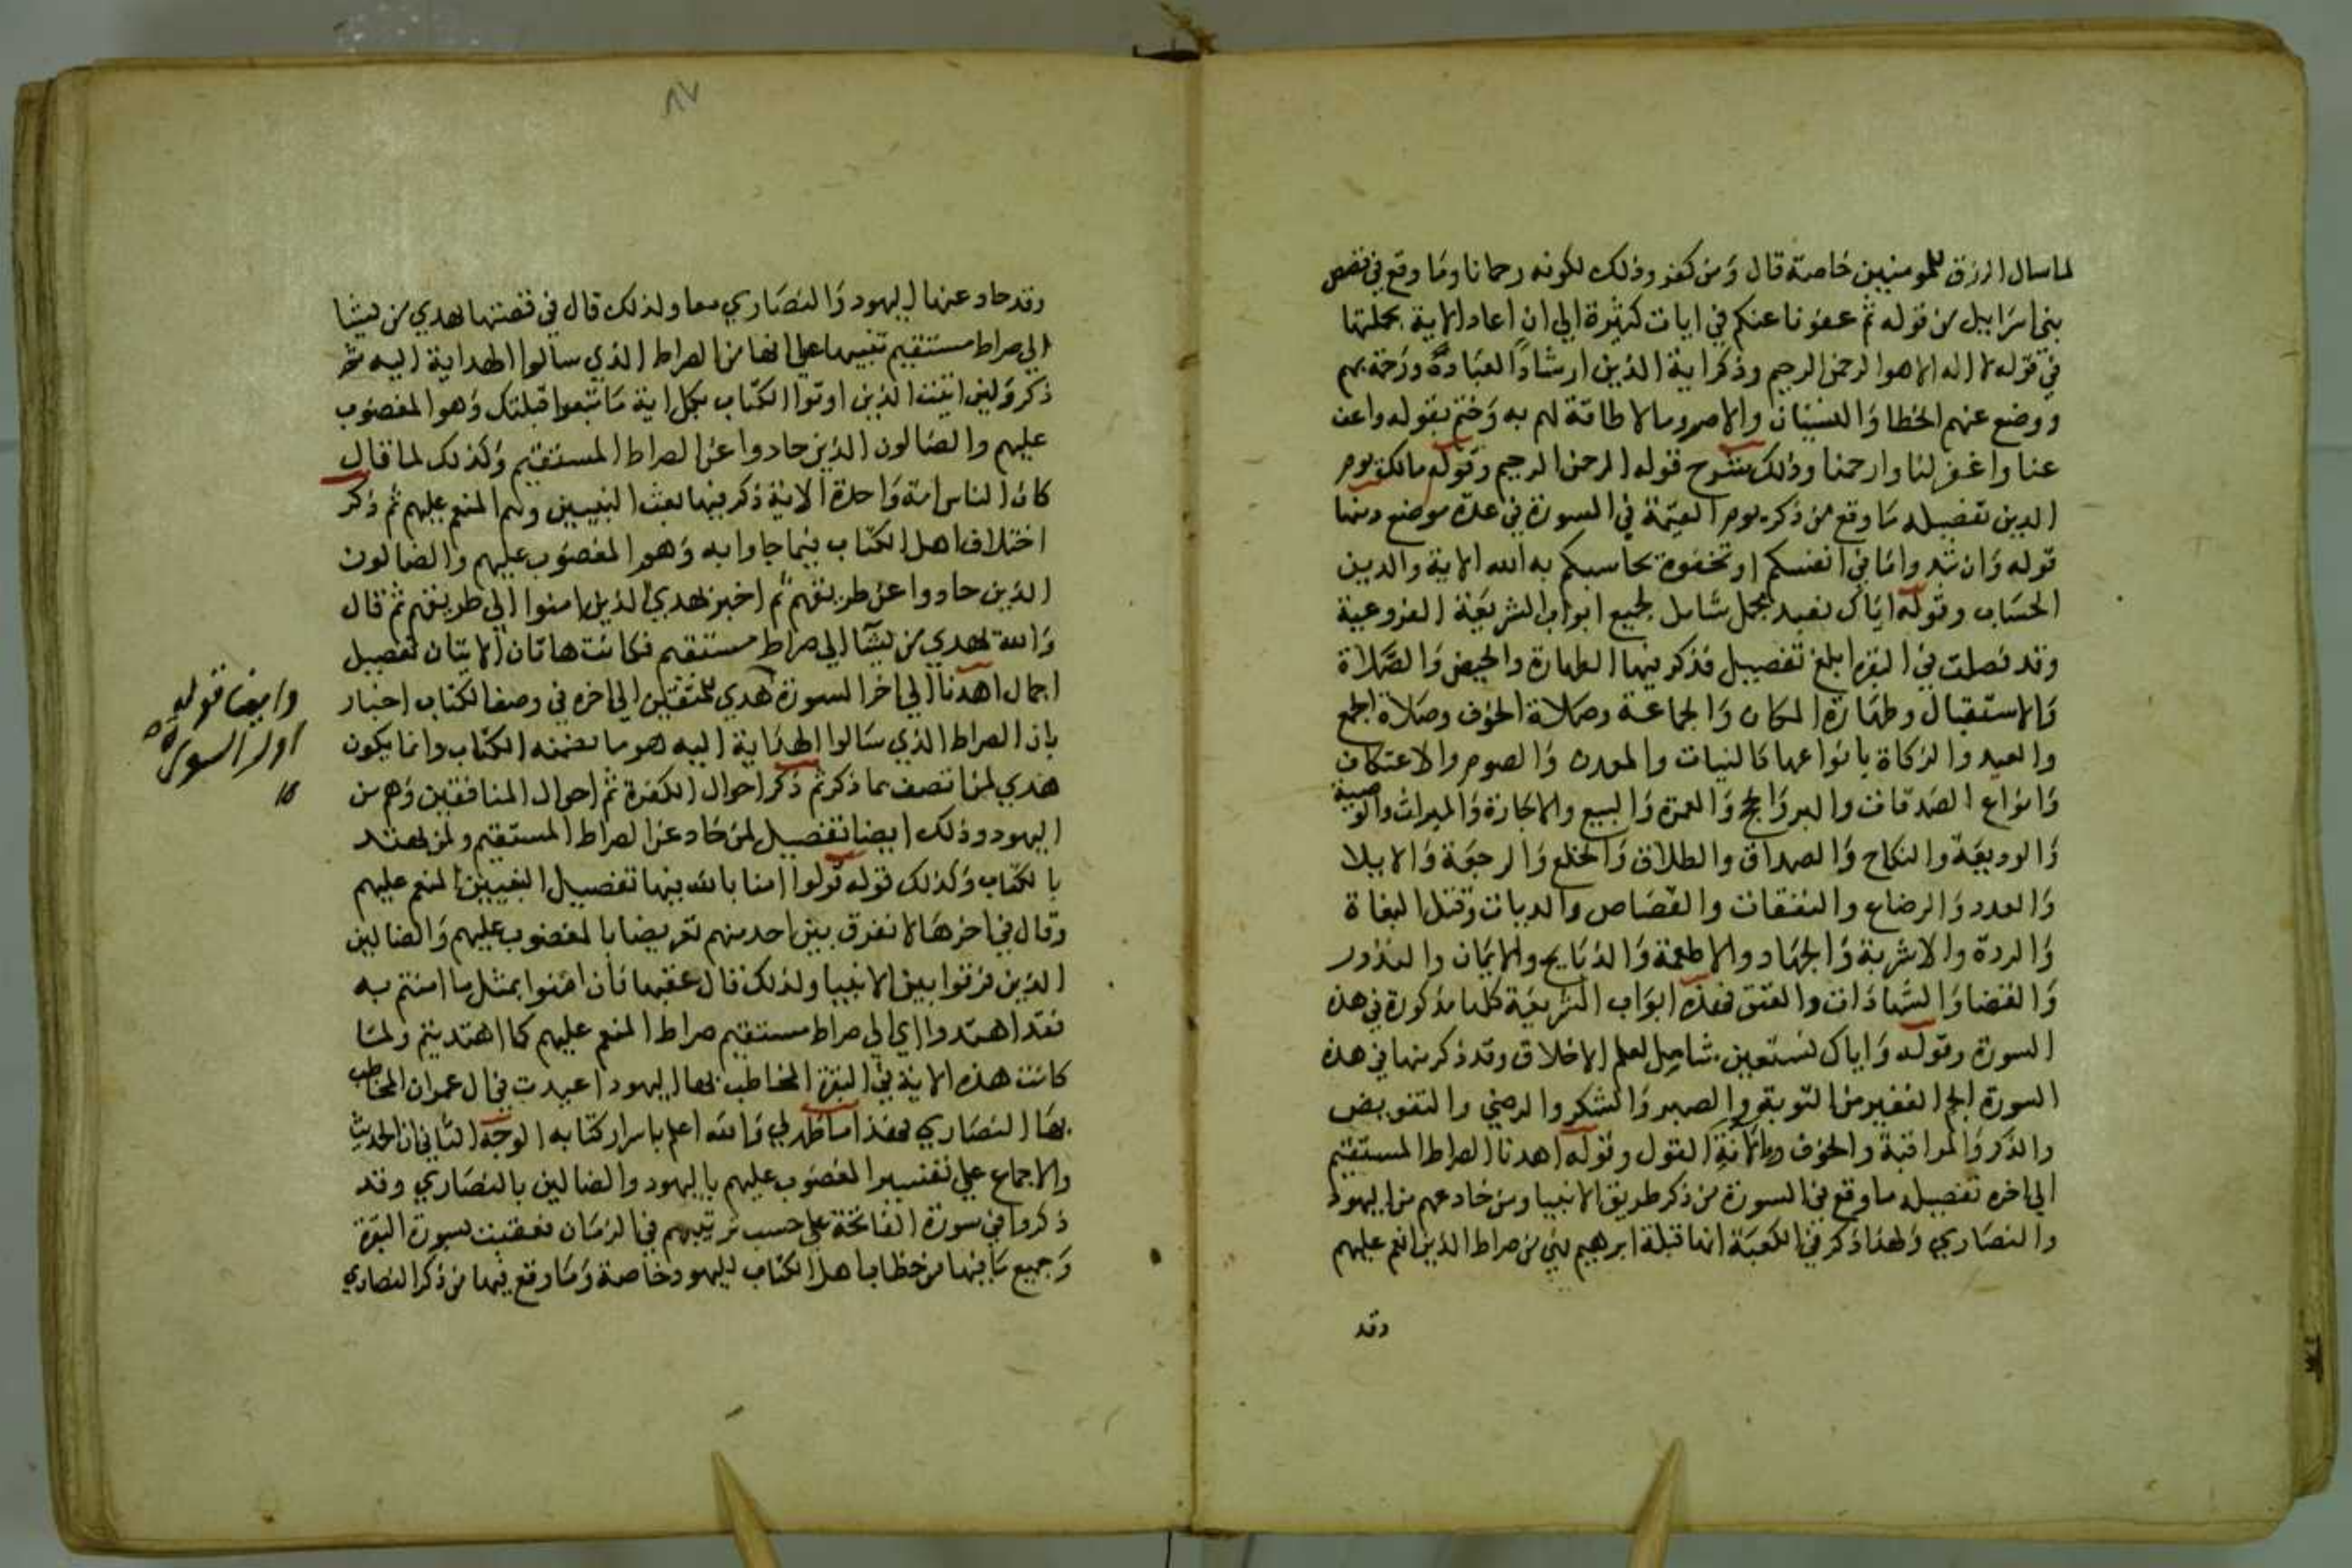 لما سال الرزق للمومنين خاصة قال وَمن كفر وذلك لكونه رحمانا ومَا وقع في قصص
بني اسرَاييل من قوله ثم عفونا عنكم في ايات كثيرة الي ان اعاد الاية بجملتها
في قوله لا اله الا هو الرحمن الرحيم وذكر اية الدين ارشادًا للعبَاد ورَحمة بهم
ووضع عنهم الخطا وَالنسيَان والاصر وما لا طاقة لهم به وَختم بقوله واعف
عنا واغفر لنا وارحمنا وذلك شرح قوله الرحمن الرحيم وقوله مالك يوم
الدين تفصيله مَا وقع من ذكر يوم القيمة في السورة في عدة موضع ومنها
قوله وَان تبدوا مَا في انفسكم او تخفوه يحاسبكم به الله الاية والدين
الحسَاب وقوله ايَاك نعبد مجمل شَامل لجميع ابواب الشريعَة الفروعية
وقد فصلت في البقره ابلغ تفصيل فذكر فيها الطهارة والحيض وَالصَّلاة
وَالاستقبال وطهَارة المكان وَالجماعة وصَلاة الخوف وصَلاة الجمع
والعيد والزكاة بانواعها كالنبات والمعدن وَالصوم والاعتكاف
وَانواع الصَدقات والبر وَالحج وَالعمرة وَالبيع والاجَارة وَالميراث والوصية
وَالوديعَة والنكاح وَالصداق والطلاق وَالخلع وَالرجعَة وَالايلا
وَالعدد وَالرضاع والنفقات والقصَاص والديات وقتل البغاة
وَالردة والاشربة وَالجهَاد والاطعمة وَالذبَايح والايمَان والنذور
وَالقضا وَالشهَادَات والعتق فهذه ابوَاب الشريعَة كلها مذكورة في هذه
السورة وقوله وَاياك نستعين شامل لعلم الاخلاق وقد ذكر منها في هذه
السورة الجم الغفير من التوبة والصبر وَالشكر والرضي والتفويض
والذكر وَالمراقبة والخوف والانة القول وقوله اهدنا الصراط المستقيم
الي اخره تفصيله ما وقع في السورة من ذكر طريق الانبيا ومن حاد عنهم من اليهود
والنصَاري وَلهذا ذكر في الكعبَة انها قبلة ابرهيم فهي من صراط الذين انعم عليهم
وقد
٨٧
وقد حاد عنها اليهود وَالنصَاري معا ولذلك قال في قصتها يهدي من يشا
الي صراط مستقيم تنبيها علي انها من الصراط الذي سالوا الهداية اليه ثم
ذكر وَلئن اتيت الذين اوتوا الكتاب بكل اية مَا تبعوا قبلتك وَهو المغضوب
عليهم والضالون الذين حادوا عن الصراط المستقيم وَكذلك لما قال
كان الناس امة وَاحدة الاية ذكر فيها بعث النبيين وهم المنعم عليهم ثم ذكر
اختلاف اهل الكتاب فيما جاوا به وَهو المغضوب عليهم والضالون
الذين حادوا عن طريقهم ثم اخبر بهدي الذين امنوا الي طريقهم ثم قال
وَالله يهدي من يشآ الي صراط مستقيم فكانت هاتان الايتان تفصيل
اجمال اهدنا الي اخر السورة هدي للمتقين الي اخره في وصف الكتاب اخبار
وايضا قوله
اول السورة
صح
بان الصراط الذي سَالوا الهدَاية اليه هو ما تضمنه الكتاب وانما يكون
هدي لمن اتصف بما ذكر ثم ذكر احوال الكفرة ثم احوال المنافقين وَهم من
اليهود وذلك ايضا تفصيل لمن حَاد عن الصراط المستقيم ولم يهتد
بالكتاب وَكذلك قوله قولوا امنا بالله فيها تفصيل النبيين المنعم عليهم
وقال في اخرهَا لا نفرق بين احد منهم تعريضا بالمغضوب عليهم وَالضالين
الذين فرقوا بين الانبيا ولذلك قال عقبها فان امَنوا بمثل ما امنتم به
فقد اهتدوا اي الي صراط مستقيم صراط المنعم عليهم كما اهتديتم ولمَا
كانت هذه الاية في البقرة المخاطب بها اليهود اعيدت في ال عمران المخاطب
بهَا النصَاري فهذا ما ظهر لي وَالله اعلم باسرار كتابه الوجه الثاني ان الحديث
والاجماع علي تفسير المغضوب عليهم باليهود والضالين بالنصَاري وقد
ذكروا في سورة الفاتحة علي حسب ترتيبهم في الزمَان فعقبت بسورة البقرة
وَجميع مَا فيها من خطاب اهل الكتاب لليهود خاصة وَمَا وقع فيها من ذكر النصاري